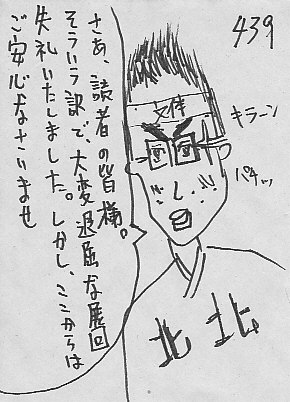 439
さあ、読者の皆様。
そういう訳で、大変退屈な展回
失礼いたしました。しかし、ここからは
ご安心なさいませ
キラーン
パチッ
北北